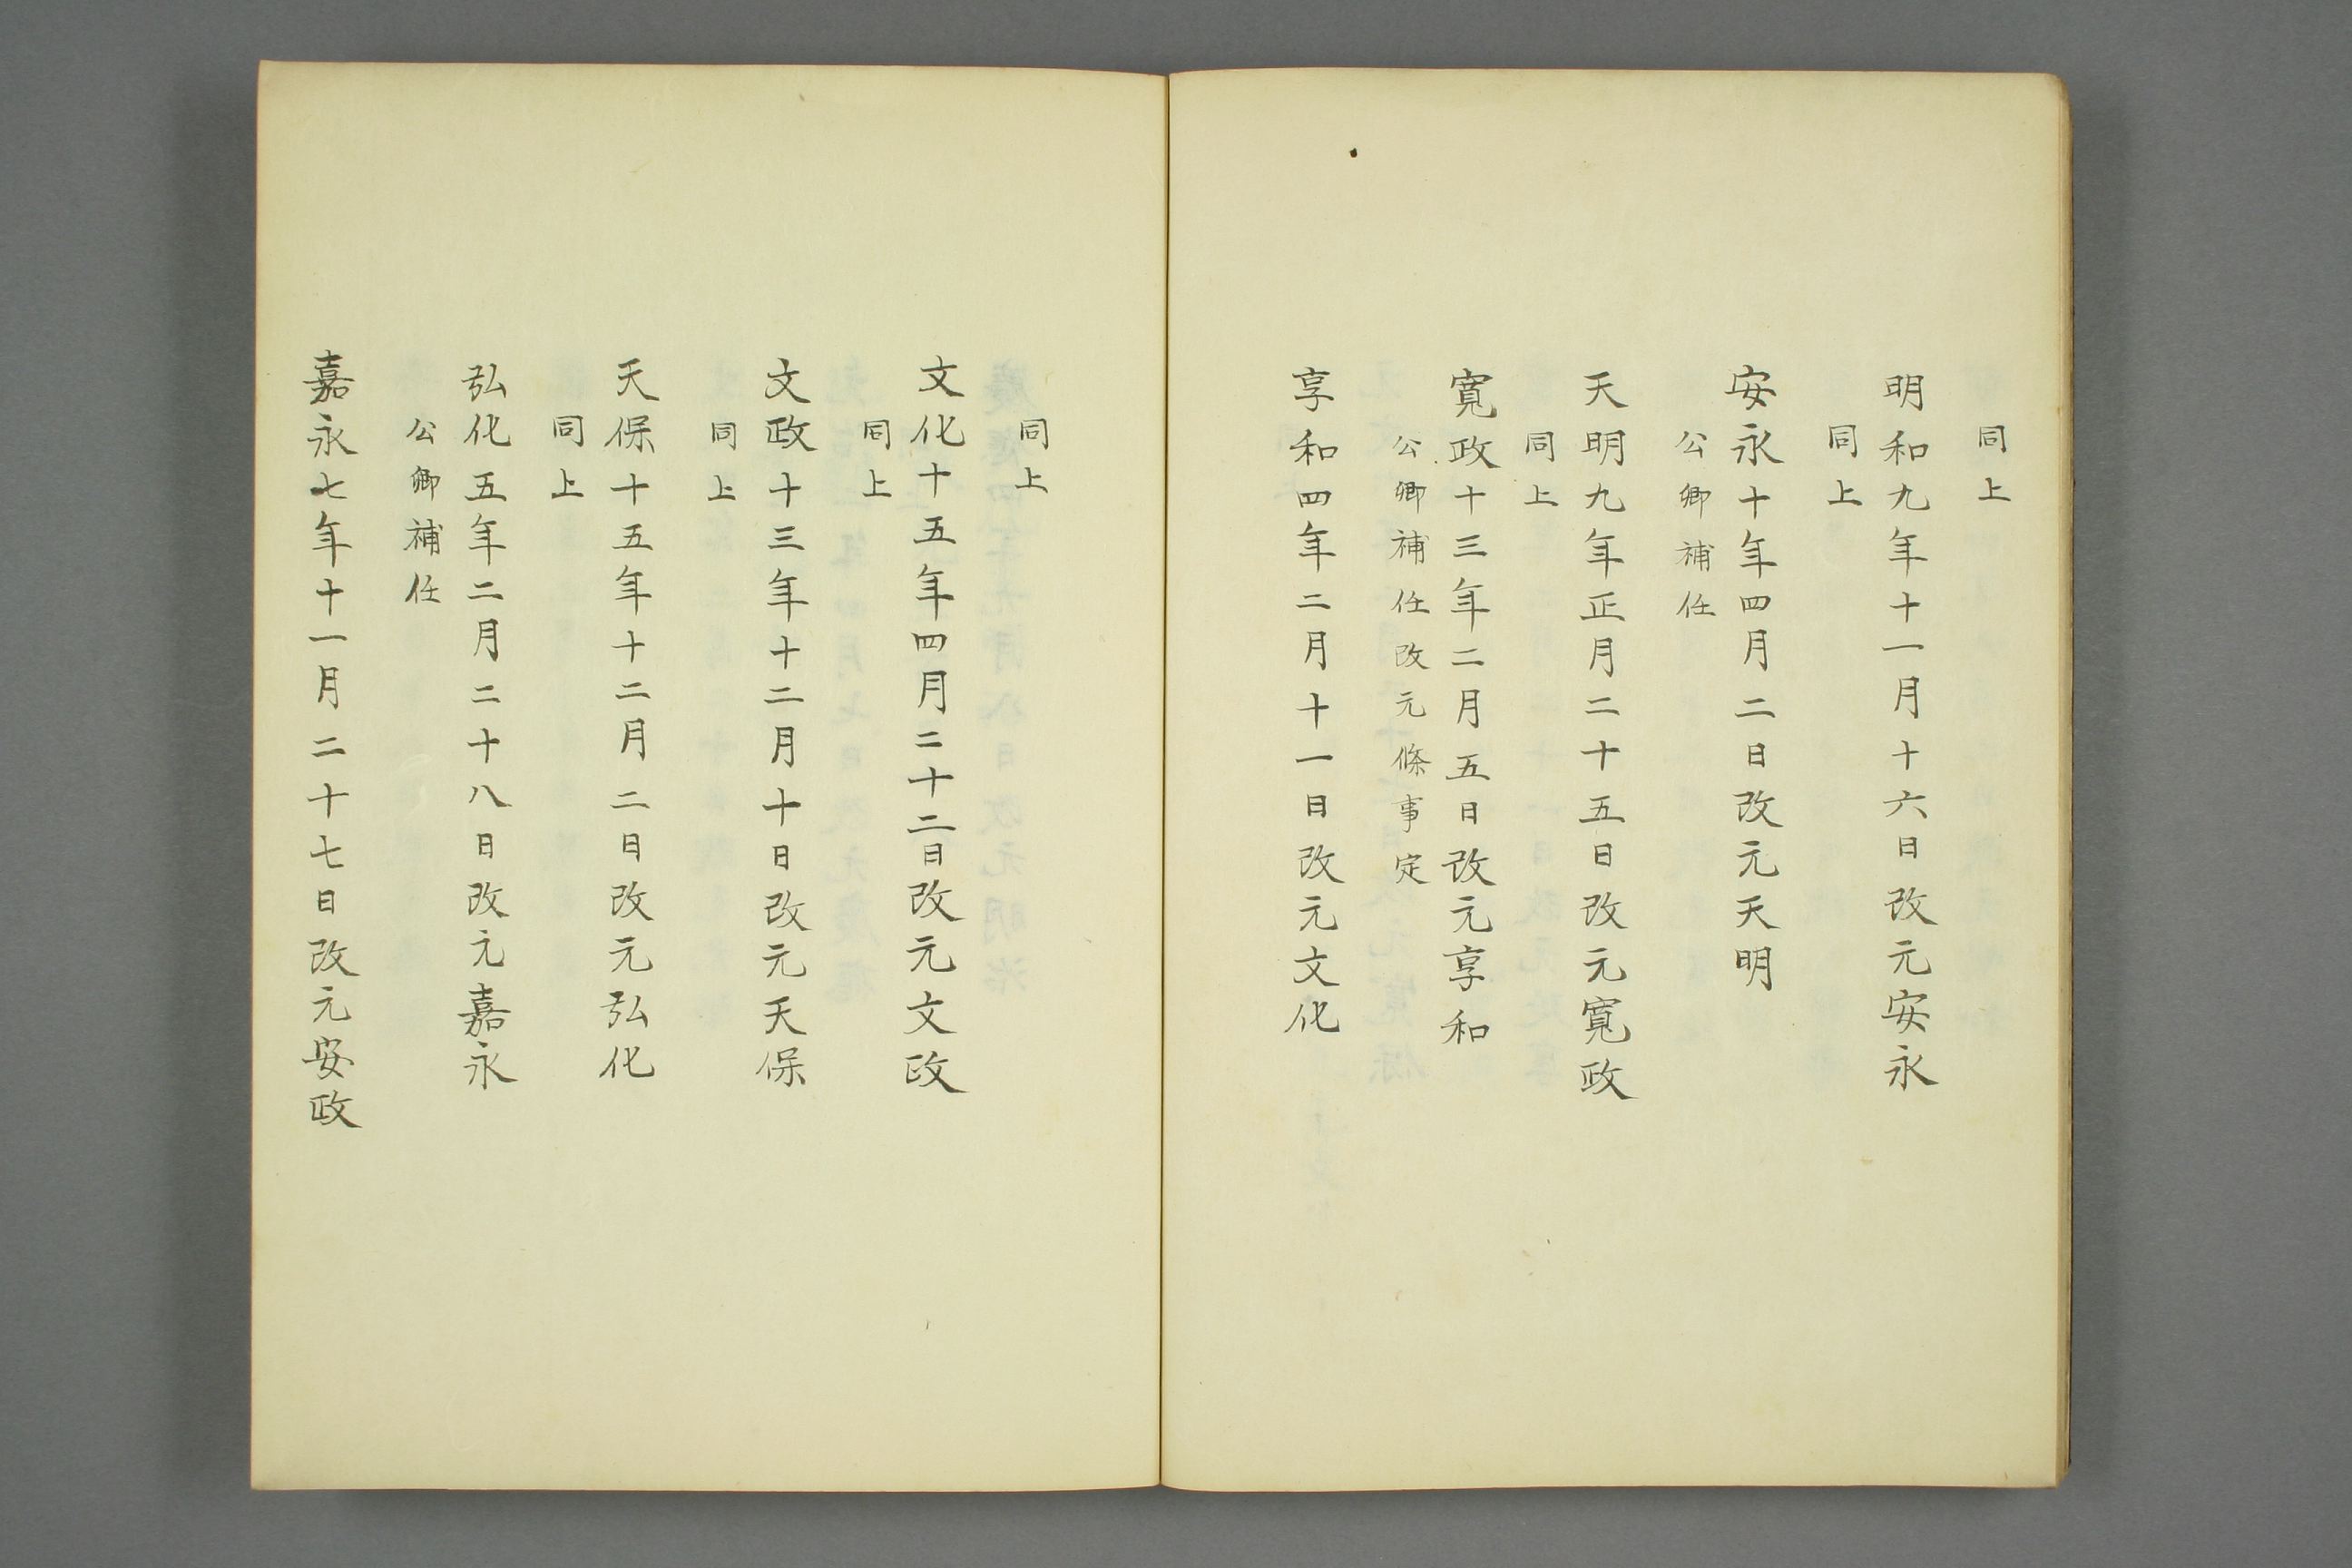 同上
明和九年十一月十六日改元安永
同上
安永十年四月二日改元天明
公卿補任
天明九年正月二十五日改元寛政
同上
寛政十三年二月五日改元享和
公卿補任改元條事定
享和四年二月十一日改元文化
同上
文化十五年四月二十二日改元文政
同上
文政十三年十二月十日改元天保
同上
天保十五年十二月二日改元弘化
同上
弘化五年二月二十八日改元嘉永
公卿補任
嘉永七年十一月二十七日改元安政